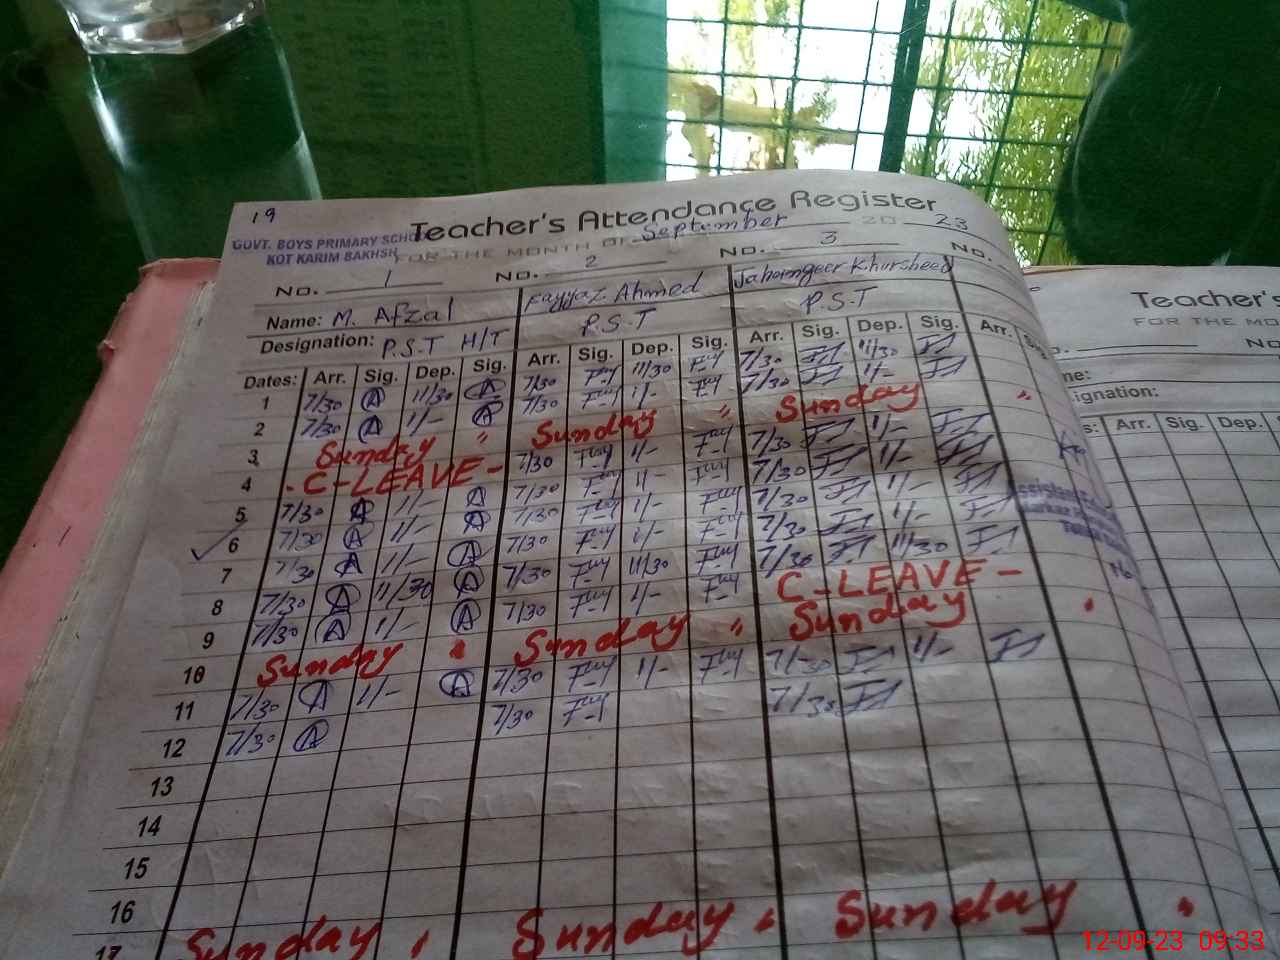 19
Teacher's Attendance Register
GOVT. BOYS PRIMARY SCHO
KOT KARIM BAKHSH
FOR THE MONTH OF September 20 23
No. 1 No. 2 No. 3 No.
Name: M. Afzal Fayyaz Ahmed Jahangeer Khursheed
Designation: P.S.T H/T P.S.T P.S.T
Dates: Arr. Sig. Dep. Sig. Arr. Sig. Dep. Sig. Arr. Sig. Dep. Sig. Arr. Sig
1 7/30 A 11/30 A 7/30 11/30 7/30 11/30
2 7/30 A 11- A 7/30 11- 7/30 11-
3 Sunday " Sunday " Sunday "
4 - C-LEAVE - 7/30 11- 7/30 11-
5 7/30 A 11- A 7/30 11- 7/30 11-
6 7/30 A 11- A 7/30 11- 7/30 11-
7 7/30 A 11- A 7/30 11- 7/30 11-
8 7/30 A 11/30 A 7/30 11/30 7/30 11/30
9 7/30 A 11- A 7/30 11- C-LEAVE -
10 Sunday " Sunday " Sunday "
11 7/30 A 11- A 7/30 11- 7/30 11-
12 7/30 A 7/30 7/30
13
14
15
16
17 Sunday " Sunday " Sunday "
Teacher's
FOR THE MO
No
me:
signation:
s: Arr. Sig. Dep.
12-09-23 09:33